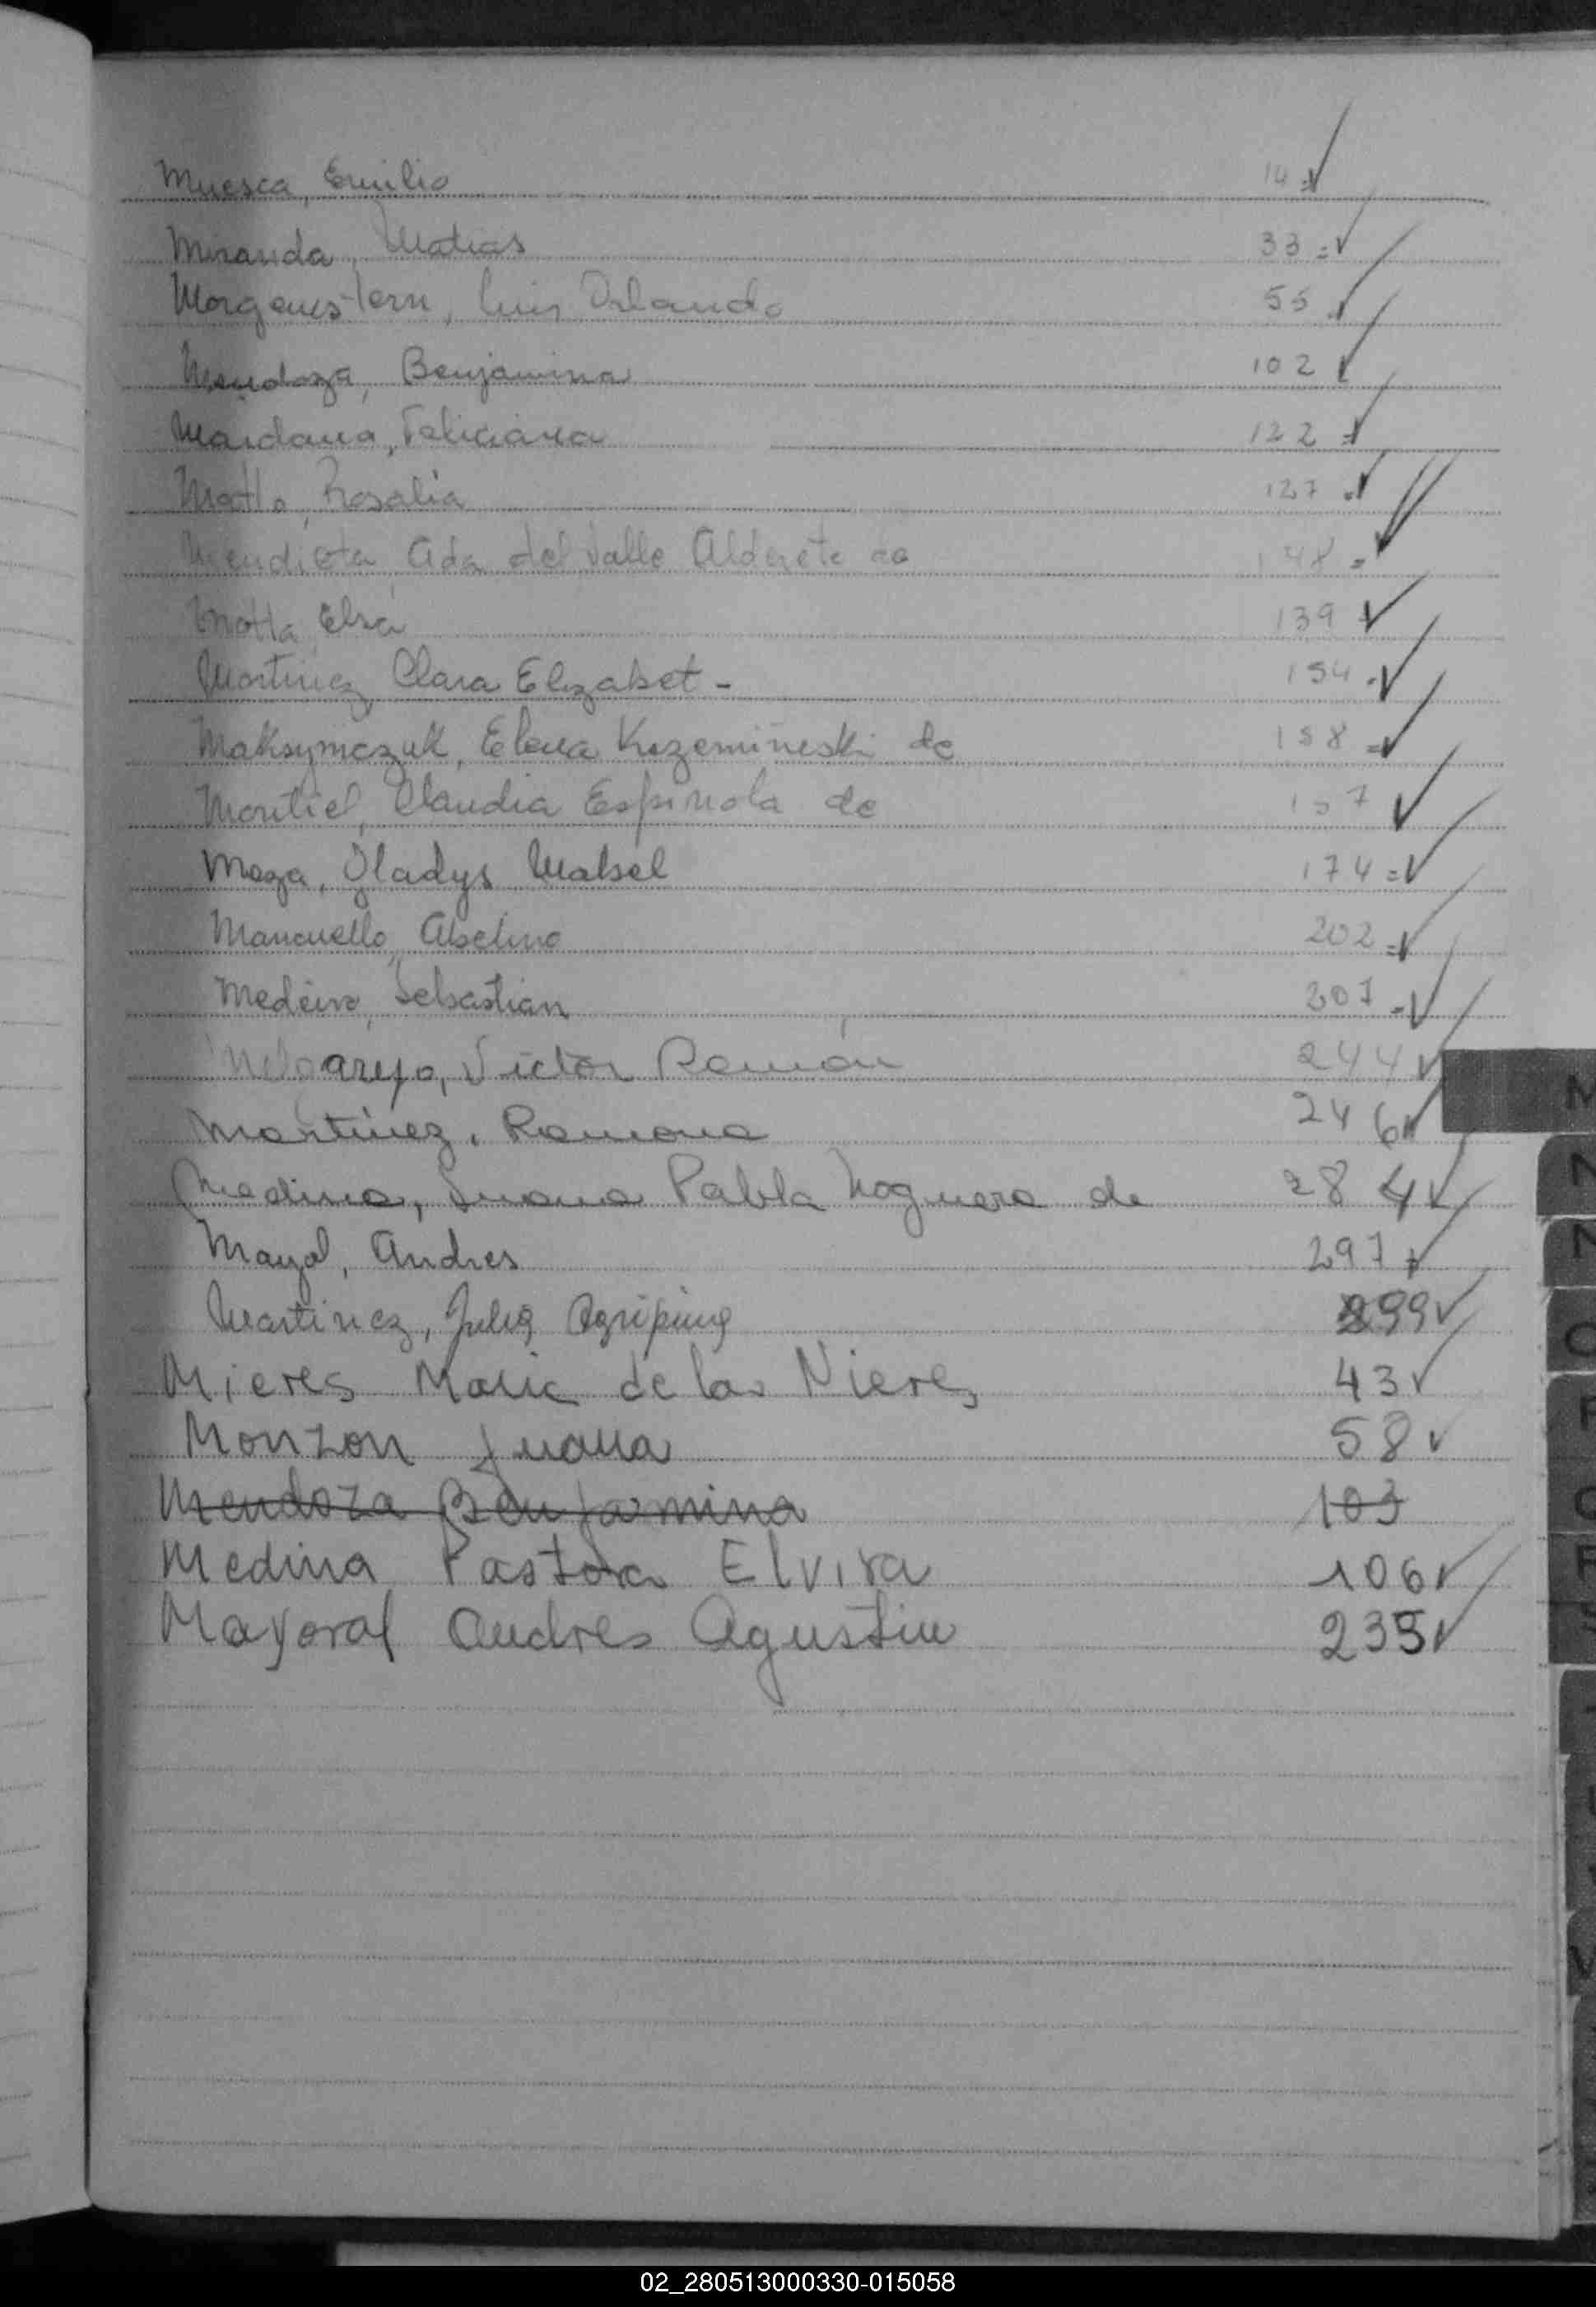 Muesca, Emilio 14 =✓
Miranda, Matias 33 =✓
Morgenstern, Luis Orlando 55 ✓
Mendoza, Benjamina 102 ✓
Maidana, Feliciana 122 =✓
Motta, Rosalia 127 ✓
Mendieta, Ada del Valle Alderete de 148 =✓
Motta, Elsa 139 ✓
Martinez, Clara Elizabet - 154 ✓
Maksymczuk, Elena Krzemineski de 158 =✓
Montiel, Claudia Espinola de 157 ✓
Meza, Gladys Mabel 174 =✓
Mancuello, Abelino 202 =✓
Medeiro, Sebastian 207 =✓
Melgarejo, Victor Ramón 244 ✓
Martinez, Ramona 246 ✓
Medina, Juana Pabla Noguera de 284 ✓
Mayol, Andres 297 ✓
Martinez, Julia Agripina 299 ✓
Mieres Maria de las Nieres 43 ✓
Monzon Juana 58 ✓
Mendoza Benjarmina 103
Medina Pastora Elvira 106 ✓
Mayoral Andres Agustin 235 ✓
M
N
N
O
P
Q
02_280513000330-015058